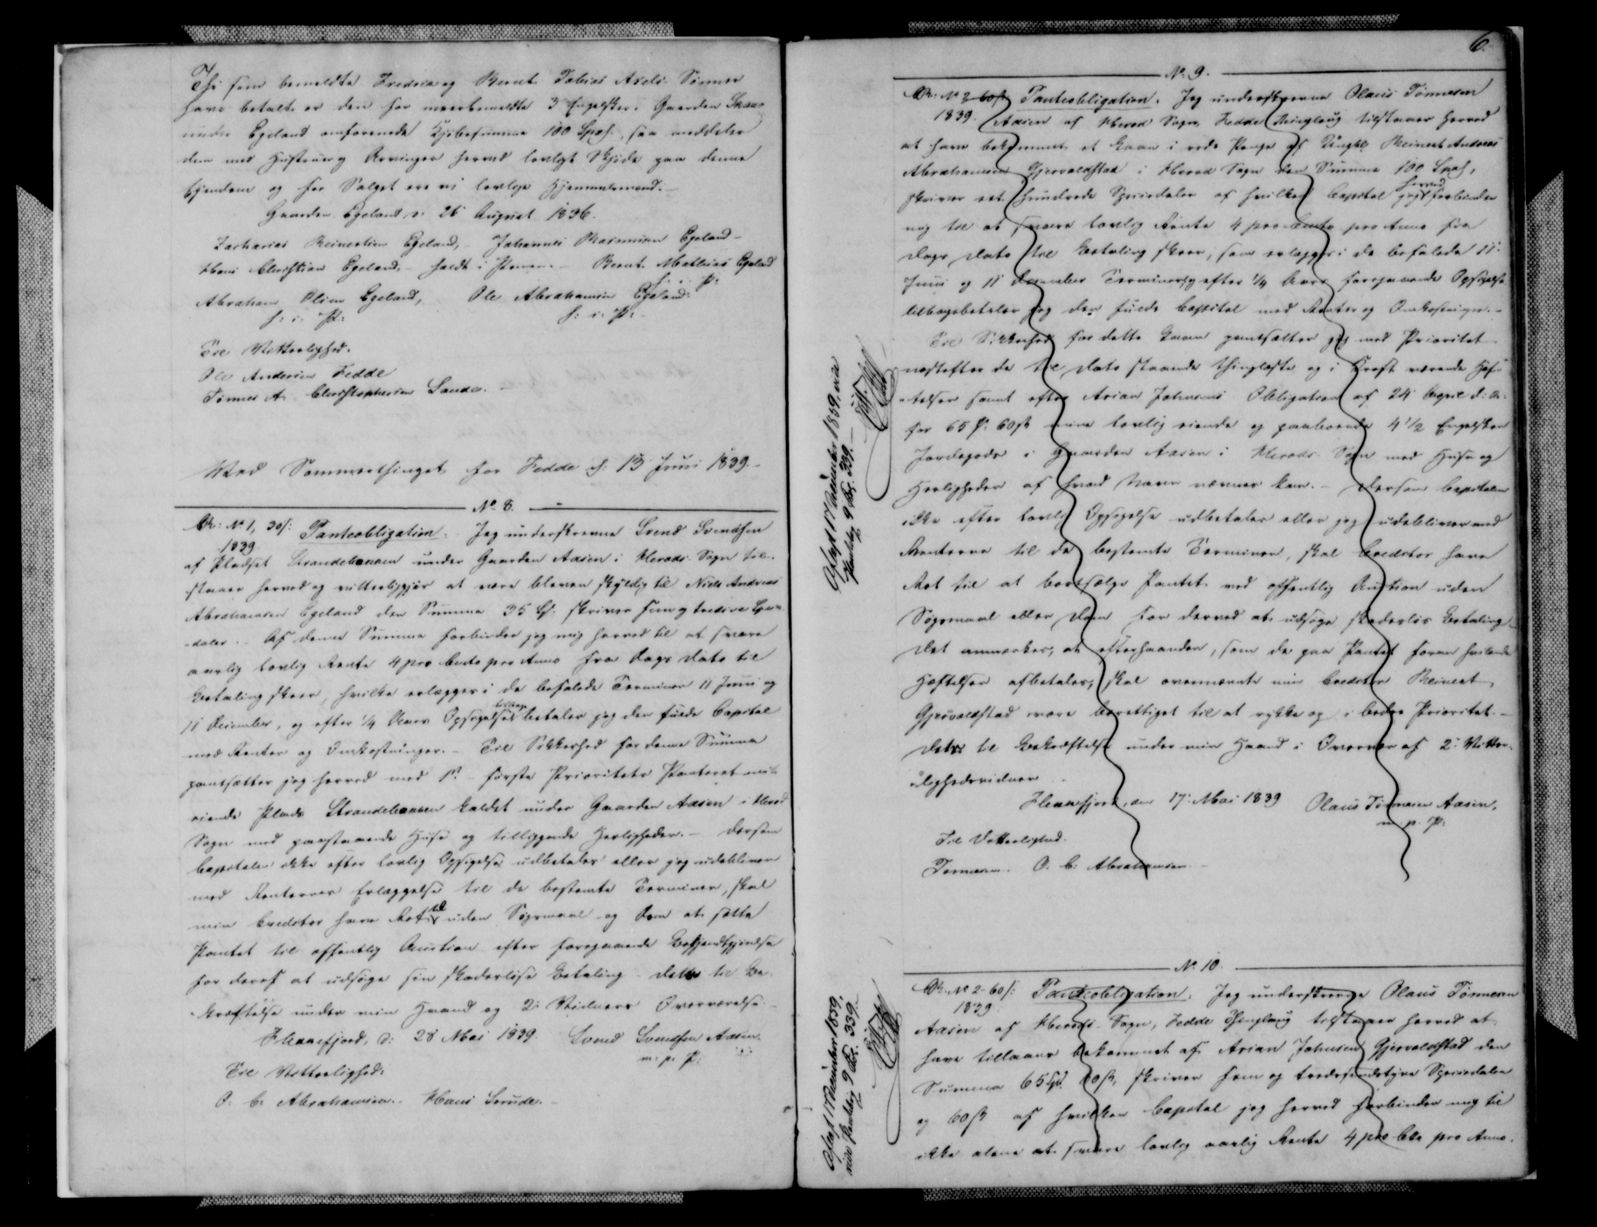 Thi som bemeldte Fredric og Bernt Tobias Axels Sønner
have betalt os den for meerbemeldte 3 Engelsker i Gaarden
under Egeland omforenede Kjøbesumma 100 Spd., saa meddeles
dem med Hustruer og Arvinger herved lovligt Skjøde paa denne
Ejendom og for Salget ere vi lovlige Hjemmelsmænd.
Gaarden Egeland d: 26 August 1836.
Zacharias Reinertsen Egeland, Johannes Rasmussen Egeland
Hans Christian Egeland, holdt i Pennen. Bernt Mathias Egeland
h: i: P:
Abraham Olsen Egeland, Ole Abrahamsen Egeland.
h: i: P: h: i: P:
Til Vitterlighed.
Ole Andersen Fedde
Tønnes A. Christophersen Sande.
Ved Sommerthinget for Fedde d. 13 Juni 1839.
No 8.
Dr: No 1, 30ß: Panteobligation. Jeg underskrevne Svend Svendsen
1839
af Pladset Strandebakken under Gaarden Aasen i Herads Sogn til-
staaer herved og vitterliggjør at være bleven skyldig til Niels Andreas
Abrahamsen Egeland den Summa 35 Sp: skriver fem og tredive Specie-
daler. Af denne Summa forbinder jeg mig herved til at svare
aarlig lovlig Rente 4 pro Cento pro Anno fra Dags Dato til
Betaling skeer, hvilke erlægges i de befalede Terminer 11 Juni og
11 December, og efter 1/4 Aars Opsigelse tilbagebetaler jeg den fulde Capital
med Renter og Omkostninger. Til Sikkerhed for denne Summa
pantsætter jeg herved med 1st første Prioritets Panteret min
eiende Plads Strandebakken kaldet under Gaarden Aasen i Herad
Sogn med paastaaende Huse og tilliggende Herligheder. Dersom
Capitalen ikke efter lovlig Opsigelse udbetales eller jeg udebliver
med Renternes Erlæggelse til de bestemte Terminer, skal
min Creditor have Ret til uden Søgsmaal og Dom at sætte
Pantet til offentlig Auction efter foregaaende Bekjendtgjørelse
for deraf at udsøge sin skadesløse Betaling. Dette til Be-
kræftelse under min Haand og 2de Vidners Overværelse.
Flekkefjord, d: 28 Mai 1839. Svend Svendsen Aasen.
m: p: P:
Til Vitterlighed:
O. C. Abrahamsen. Hans Serude.
6.
No 9.
Dr: No 2 60ß Panteobligation. Jeg underskrevne Olaus Tønnesen
1839.
Aasen af Herad Sogn, Fedde Thinglaug tilstaaer herved
at have bekommet et Laan i rede Penge af Reinert Andreas
Abrahamsen Gjervoldstad i Herad Sogn den Summa 100 Spd,
skriver eet hundrede Speciedaler af hvilken Capital jeg herved forbinder
mig til at svare lovlig Rente 4 pro Cento pro Anno fra
Dags Dato til Betaling skeer, som erlægges i de befalede 11
Juni og 11 December Terminer, og efter 1/4 Aars foregaaende Opsigelse
tilbagebetaler jeg den fulde Capital med Renter og Omkostninger.
Til Sikkerhed for dette Laan pantsætter jeg med Prioritet
næstefter de til Dato staaende thinglæste og i Kraft værende Hæf-
telser samt efter Arian Johnsens Obligation af 24 April d: A:
for 65 Sp. 60ß mine lovlig eiende og paaboende 4 1/2 Engelsker
Jordegods i Gaarden Aasen i Herads Sogn med Huse og
Herligheder af hvad Navn nævnes kan. Dersom Capitalen
ikke efter lovlig Opsigelse udbetales eller jeg udebliver med
Renterne til de bestemte Terminer, skal Creditor have
Ret til at bortsælge Pantet ved offentlig Auction uden
Søgsmaal eller Dom for derved at udsøge skadesløs Betaling.
Det anmærkes, at efterhaanden, som de paa Pantet foran heftende
Hæftelser afbetales, skal ovennævnte min Creditor Reinert
Gjervoldstad være berettiget til at rykke op i bedre Prioritet.
Dette til Bekræftelse under min Haand i Overvær af 2de Vitter-
lighedsvidner.
Flekkefjord, den 17 Mai 1839 Olaus Tønnesen Aasen.
m. p. P:
Til Vitterlighed.
Tønnesen. O. C. Abrahamsen.
Aflæst 17 December 1859, vide
Pantebog 9 Fol. 339.
No 10.
Dr: No 2 - 60ß: Panteobligation. Jeg underskrevne Olaus Tønnesen
1839
Aasen af Herads Sogn, Fedde Thinglaug tilstaaer herved at
have tillaans bekommet af Arian Johnsen Gjervoldstad den
Summa 65 Spd 60ß, skriver fem og tredsindstyve Speciedaler
og 60ß af hvilken Capital jeg herved forbinder mig til
ikke alene at svare lovlig aarlig Rente 4 pro Cto pro Anno.
Aflæst 17 December 1859,
vide Pantebog 9 Fol. 339.